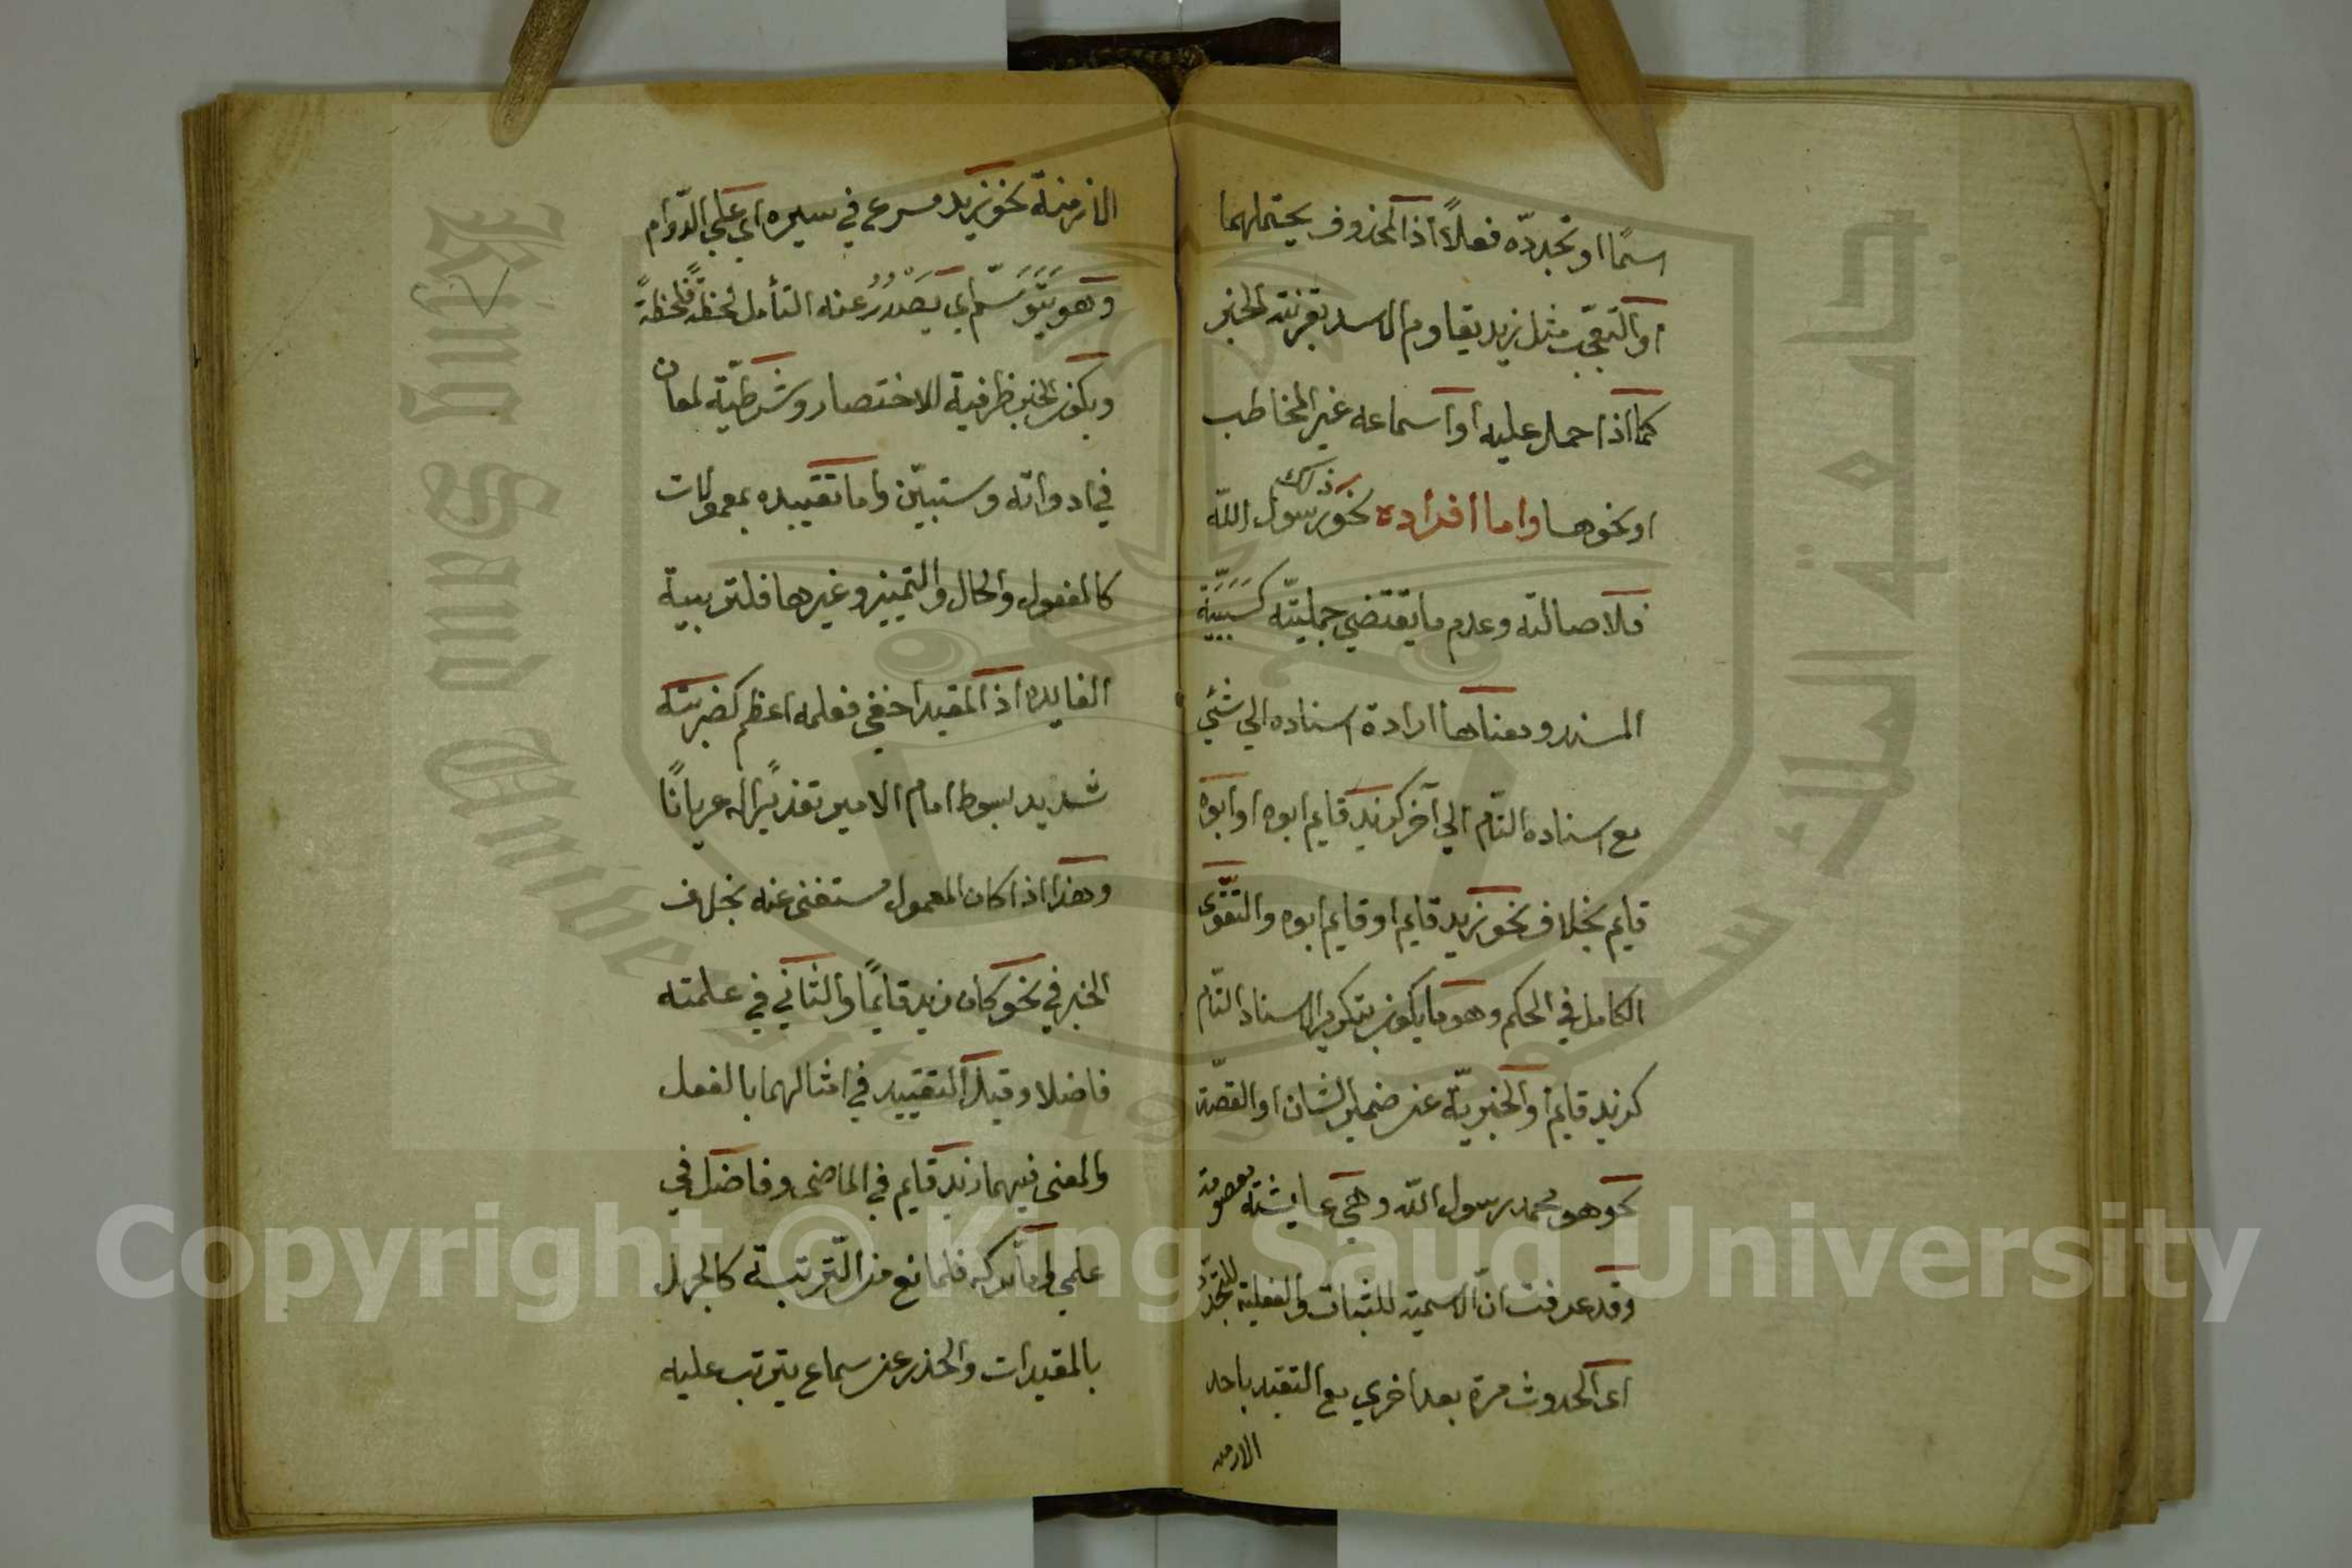 اسمًا او تجدده فعلاً اذ المحذوف يحتملهما
او التعجّب مثل زيد يقاوم الاسد بقرينته الخبر
كما اذا حمل عليه او اسماعه غير المخاطب
او نحوها واما افراده نحو ذلك رسول الله
فلاصالته وعدم ما يقتضي جمليّته كسَبَبيّة
المسند ومعناها ارادة اسناده الي شئي
مع اسناده التّام الي آخر كزيد قايم ابوه او ابوه
قايم بخلاف نحو زيد قايم او قايم ابوه والتّقوّى
الكامل في الحكم وهو ما يكون بتكرير الاسناد التّام
كزيد قايم والخبريّة عن ضمير الشان او القصّة
نحو هو محمد رسول الله وهي عايشته معصومة
وقد عرفت انّ الاسمية للثبات والفعلية للتجدّد
اى الحدوث مرة بعد اخري مع التقيد باحد
الازمنة
الازمنة نحو زيد مسرع في سيره اي علي الدّوام
وهو يَتَوَسّم اي يَصْدُرُ عنه التأمل لحظةً فلحظةً
ويكون الخبر ظرفية للاختصار وشرطيّة لمعان
في ادواته وستبيّن واما تقييده بمعمولات
كالمفعول والحال والتمييز وغيرها فلتربية
الفايده اذ المقيد اخفي فعلمه اعظم كضربته
شديد بسوط امام الامير تعذيرًا له عريانًا
وهذا اذا كان المعمول مستغنى عنه بخلاف
الخبر في نحو كان زيد قايمًا والثاني في علمته
فاضلا وقيل التقييد في امثالهما بالفعل
والمعنى فيهما زيد قايم في الماضى وفاضل في
علمي واما تركه فلمانع من التّربية كالجهل
بالمقيدات والحذر عن سماع يترتب عليه
Copyright © King Saud University
King Saud University
جامعة الملك سعود